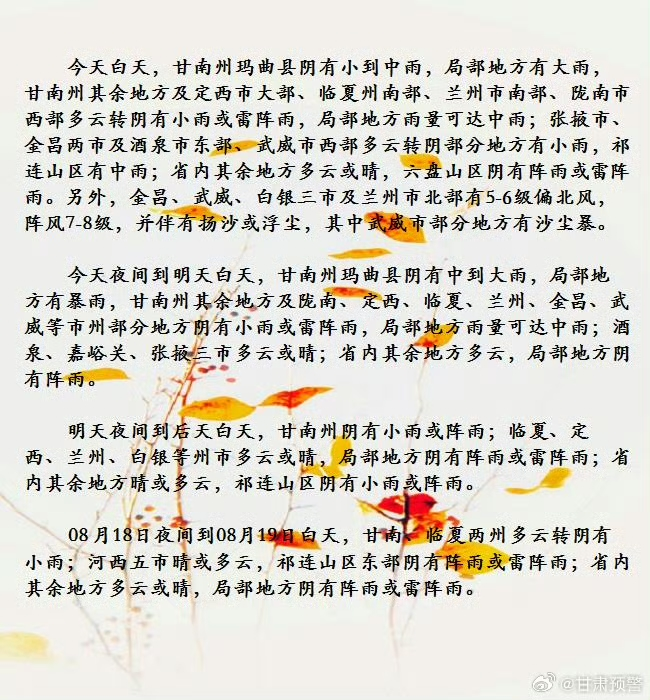 今天白天，甘南州玛曲县阴有小到中雨，局部地方有大雨，
甘南州其余地方及定西市大部、临夏州南部、兰州市南部、陇南市
西部多云转阴有小雨或雷阵雨，局部地方雨量可达中雨；张掖市、
金昌两市及酒泉市东部、武威市西部多云转阴部分地方有小雨，祁
连山区有中雨；省内其余地方多云或晴，六盘山区阴有阵雨或雷阵
雨。另外，金昌、武威、白银三市及兰州市北部有5-6级偏北风，
阵风7-8级，并伴有扬沙或浮尘，其中武威市部分地方有沙尘暴。
今天夜间到明天白天，甘南州玛曲县阴有中到大雨，局部地
方有暴雨，甘南州其余地方及陇南、定西、临夏、兰州、金昌、武
威等市州部分地方阴有小雨或雷阵雨，局部地方雨量可达中雨；酒
泉、嘉峪关、张掖三市多云或晴；省内其余地方多云，局部地方阴
有阵雨。
明天夜间到后天白天，甘南州阴有小雨或阵雨；临夏、定
西、兰州、白银等州市多云或晴，局部地方阴有阵雨或雷阵雨；省
内其余地方晴或多云，祁连山区阴有小雨或阵雨。
08月18日夜间到08月19日白天，甘南、临夏两州多云转阴有
小雨；河西五市晴或多云，祁连山区东部阴有阵雨或雷阵雨；省内
其余地方多云或晴，局部地方阴有阵雨或雷阵雨。
@甘肃预警